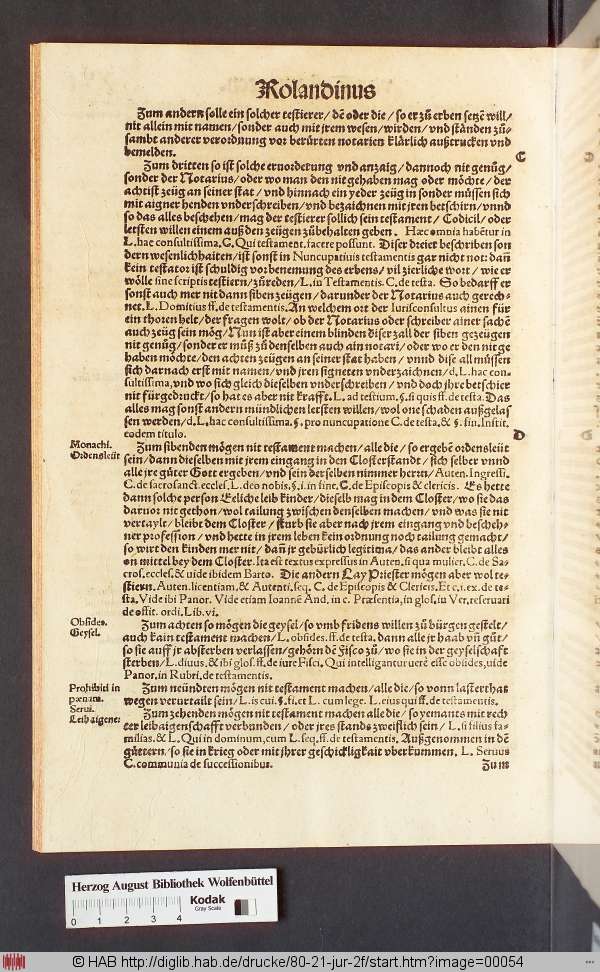 Rolandinus
Zum andern solle ein solcher testierer / dē oder die / so er zů erben setzē will /
nit allein mit namen / sonder auch mit jrem wesen / wirden / vnd stånden zů=
sambt anderer verordnung vor berůrten notarien klårlich außtrucken vnd
bemelden.
C
Zum dritten so ist solche eruorderung vnd anzaig / dannoch nit genůg /
sonder der Notarius / oder wo man den nit gehaben mag oder möchte / der
achtist zeüg an seiner stat / vnd hinnach ein yeder zeüg in sonder müssen sich
mit aigner henden vnderschreiben / vnd bezaichnen mit jren betschirn / vnnd
so das alles beschehen / mag der testierer söllich sein testament / Codicil / oder
letsten willen einem auß den zeügen zůbehalten geben. Hæc omnia habētur in
L. hac consultissima. C. Qui testament. facere possunt. Diser dreier beschriben son
dern wesenlichhaiten / ist sonst in Nuncupatiuis testamentis gar nit not: dañ
kein testator ist schuldig vor benennung des erbens / vil zierliche wort / wie er
wölle sine scriptis testiern / zůreden / L. iu Testamentis. C. de testa. So bedarff er
sonst auch mer nit dann siben zeügen / darunder der Notarius auch gerech=
net. L. Domitius ff. de testamentis. An welchem ort der Iurisconsultus ainen für
ein thoren helt / der fragen wolt / ob der Notarius oder schreiber ainer sachē
auch zeüg sein mög / Nun ist aber einem blinden diser zall der siben gezeügen
nit genůg / sonder er můß zů denselben auch ain notari / oder wo er den nit ge
haben möchte / den achten zeügen an seiner stat haben / vnnd dise all müssen
sich darnach erst mit namen / vnd jren signeten vnderzaichnen / d. L. hac con=
sultissima, vnd wo sich gleich dieselben vnderschreiben / vnd doch jhr betschier
nit fürgedruckt / so hat es aber nit krafft. L. ad testium. §. si quis ff. de testa. Das
alles mag sonst andern mündlichen letsten willen / wol one schaden außgelas
sen werden / d. L. hac consultissima. §. pro nuncupatione C. de testa. & §. fin. Instit.
eodem titulo.
D
Monachi.
Ordensleüt
Zum sibenden mögen nit testament machen / alle die / so ergebē ordensleüt
sein / dann dieselben mit jrem eingang in den Closterstandt / sich selber vnnd
alle jre güter Gott ergeben / vnd sein derselben nimmer herrn / Auten. Ingressi.
C. de sacrosanct. eccles. L. deo nobis. §. i. in fine. C. de Episcopis & clericis. Es hette
dann solche person Eeliche leib kinder / dieselb mag in dem Closter / wo sie das
daruor nit gethon / wol tailung zwischen denselben machen / vnd was sie nit
vertaylt / bleibt dem Closter / sturb sie aber nach jrem eingang vnd besche=
ner profession / vnd hette in jrem leben kein ordnung noch tailung gemacht /
so wirt den kinden mer nit / dañ jr gebürlich legitima / das ander bleibt alles
on mittel bey dem Closter. Ita est textus expressus in Auten. si qua mulier. C. de Sa=
cros. eccles. & uide ibidem Barto. Die andern Lay Priester mögen aber wol te=
stiern. Auten. licentiam, & Autenti. seq. C. de Episcopis & Clericis. Et c. i. ex. de te=
sta. Vide ibi Panor. Vide etiam Ioannē And. in c. Præsentia, in glos. iu Ver. reseruari
de offit. ordi. Lib. vi.
Obsides.
Geysel.
Zum achten so mögen die geysel / so vmb fridens willen zů bürgen gestelt /
auch kain testament machen / L. obsides. ff. de testa. dann alle jr haab vñ gůt /
so sie auff jr absterben verlassen / gehörn dē Fisco zů / wo sie in der geyselschafft
sterben / L. diuus, & ibi glos. ff. de iure Fisci. Qui intelligantur uerè esse obsides, uide
Panor. in Rubri. de testamentis.
Prohibiti in
pœnam.
Zum neündten mögen nit testament machen / alle die / so vonn lasterthat
wegen verurtailt sein / L. is cui. §. fi. et L. cum lege. L. eius qui ff. de testamentis.
Serui.
Leib aigene:
Zum zehenden mögen nit testament machen alle die / so yemants mit rech
ter leibaigenschafft verbunden / oder jres stands zweiflich sein / L. si filius fa=
milias. & L. Qui in dominum, cum L. seq. ff. de testamentis. Außgenommen in dē
güttern / so sie in krieg oder mit jhrer geschickligkait vberkummen. L. Seruus
C. communia de successionibus.
Zum
Herzog August Bibliothek Wolfenbüttel
Kodak
Gray Scale
0 1 2 3 4
© HAB http://diglib.hab.de/drucke/80-21-jur-2f/start.htm?image=00054